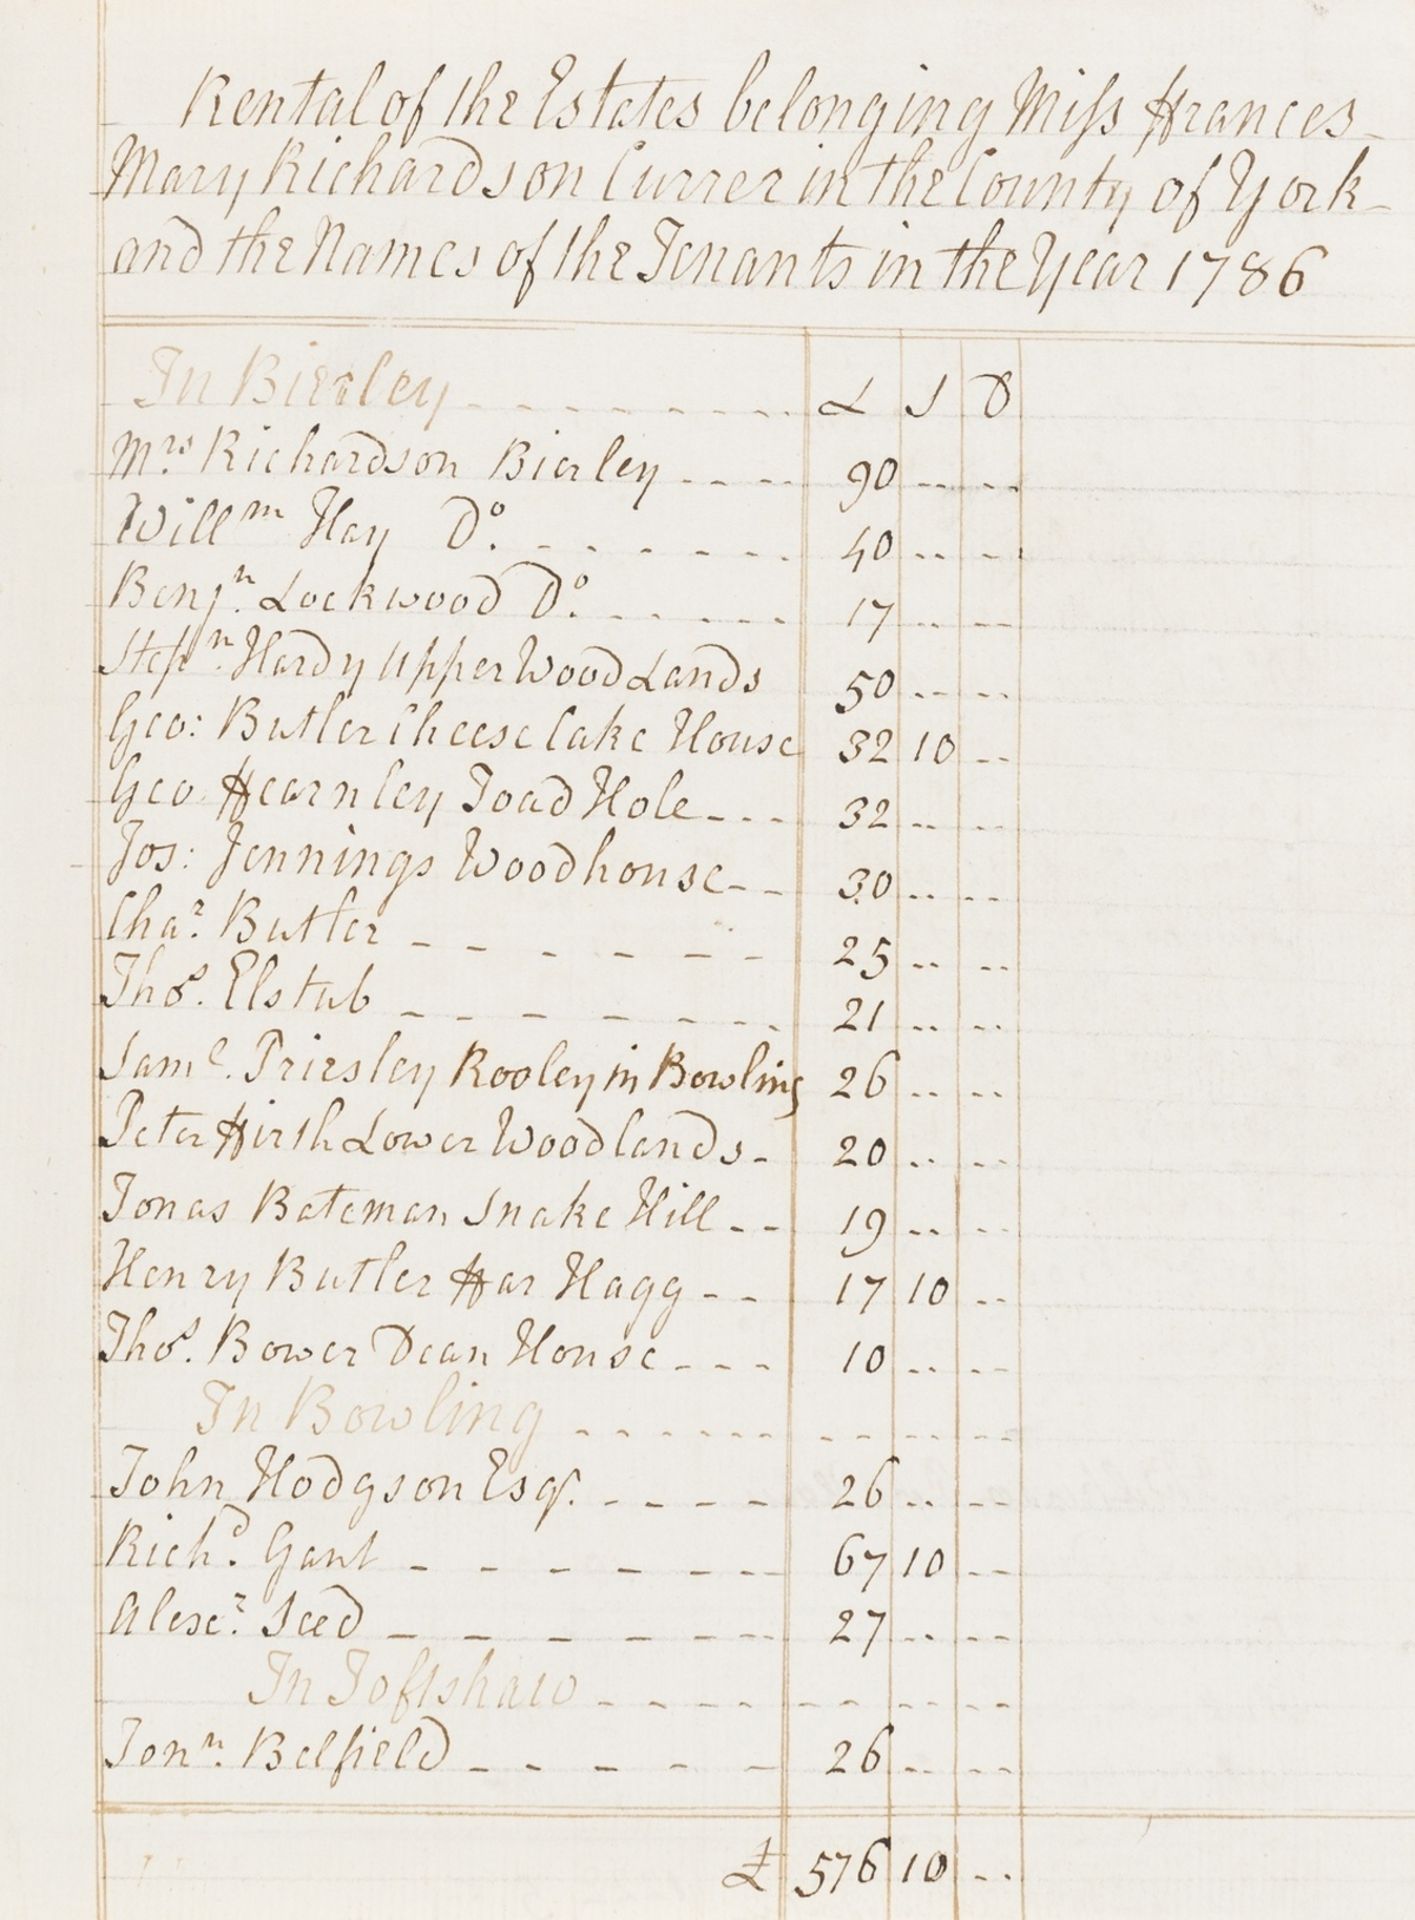 Rental of the Estates belonging Miss Frances
Mary Richardson Currer in the County of York
and the Names of the Tenants in the Year 1786
In Bierley - - - - - - - - - £ S D
Mrs. Richardson Bierley - - - - 90 .. ..
Willm Hay Do. - - - - - - - 40 .. ..
Benjn. Lockwood Do. - - - - - - 17 .. ..
Stepn. Hardy Upper Wood Lands 50 .. ..
Geo: Butler Cheese Cake House 32 10 ..
Geo Fearnley Toad Hole - - - 32 .. ..
Jos: Jennings Woodhouse - - 30 .. ..
Chas. Butler - - - - - - 25 .. ..
Thos. Elstub - - - - - - - - 21 .. ..
Saml. Priesley Rooley in Bowling 26 .. ..
Peter Firth Lower Woodlands - 20 .. ..
Jonas Bateman Snake Hill - - 19 .. ..
Henry Butler Far Hagg - - 17 10 ..
Thos. Bower Dean House - - - 10 .. ..
In Bowling - - - - - - - - - .. ..
John Hodgson Esqr. - - - - - 26 .. ..
Richd. Gant - - - - - - - 67 10 ..
Alexr. Seed - - - - - - - 27 .. ..
In Toftshaw - - - - - - - - .. ..
Jonn. Belfield - - - - - 26 .. ..
£ 576 10 ..